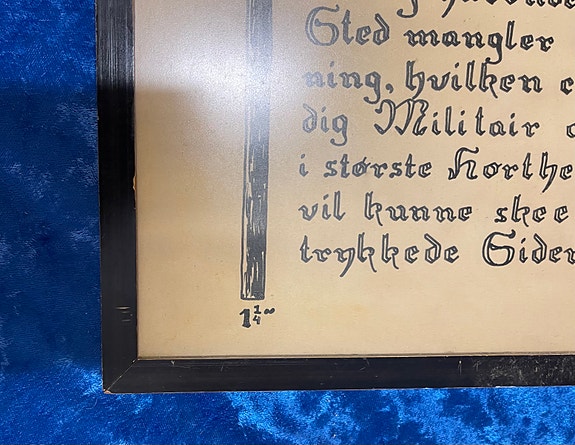 Sted mangler
ning, hvilken
dig Militair
i største Korthe
vil kunne skee
trykkede Sider
1 1/4"